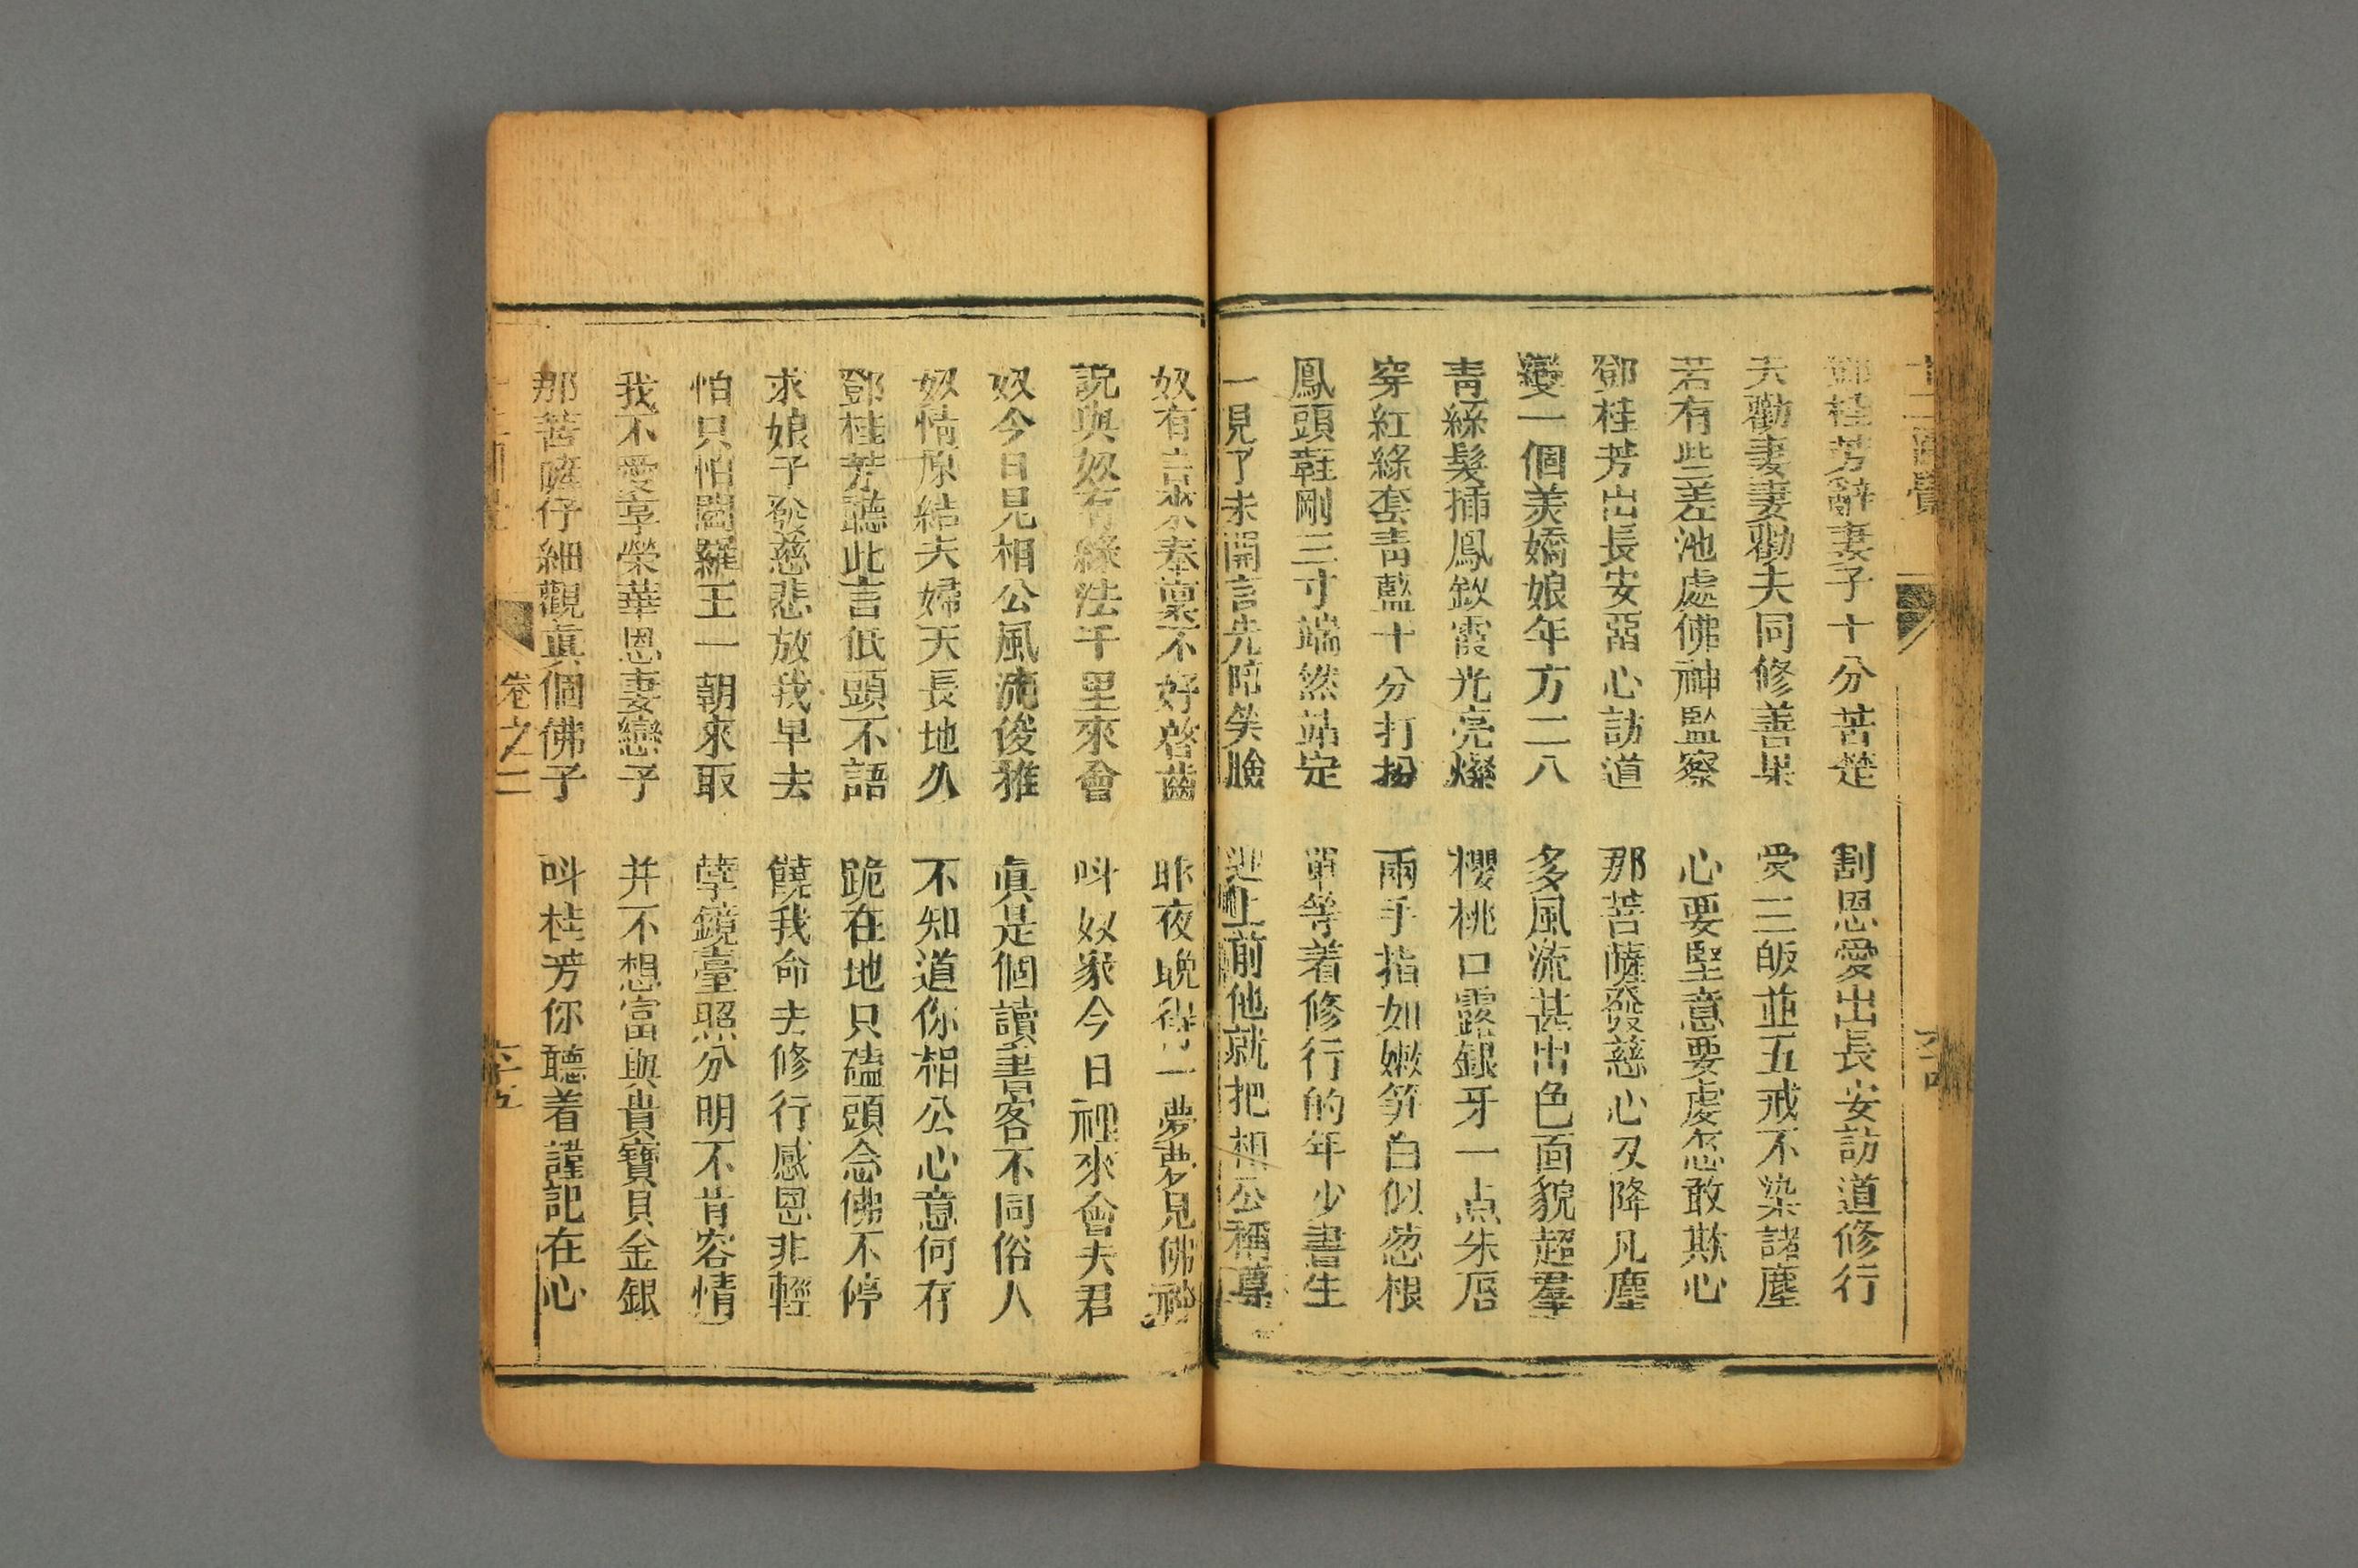 鄧桂芳辭妻子十分苦楚 割恩愛出長安訪道修行
夫勸妻妻勸夫同修善果 受三皈並五戒不染諸塵
若有些差池處佛神監察 心要堅意要虔怎敢欺心
鄧桂芳出長安習心訪道 那菩薩發慈心又降凡塵
變一個美嬌娘年方二八 多風流甚出色面貌超羣
青絲髮插鳳釵霞光亮燦 櫻桃口露銀牙一点朱唇
穿紅綠套青藍十分打扮 兩手指如嫩笋白似葱根
鳳頭鞋剛三寸端然站定 單等着修行的年少書生
一見了未開言先陪笑臉 迎上前他就把相公稱尊
奴有言來奉禀不好啓齒 昨夜晚得一夢夢見佛神
說與奴有緣法千里來會 呌奴家今日裡來會夫君
奴今日見相公風流俊雅 真是個讀書客不同俗人
奴情原結夫婦天長地久 不知道你相公心意何存
鄧桂芳聽此言低頭不語 跪在地只磕頭念佛不停
求娘子發慈悲放我早去 饒我命去修行感恩非輕
怕只怕閻羅王一朝來取 孽鏡臺照分明不肯容情
我不愛享榮華恩妻戀子 并不想富與貴寶貝金銀
那菩薩仔細觀真個佛子 呌桂芳你聽着謹記在心
卷之二